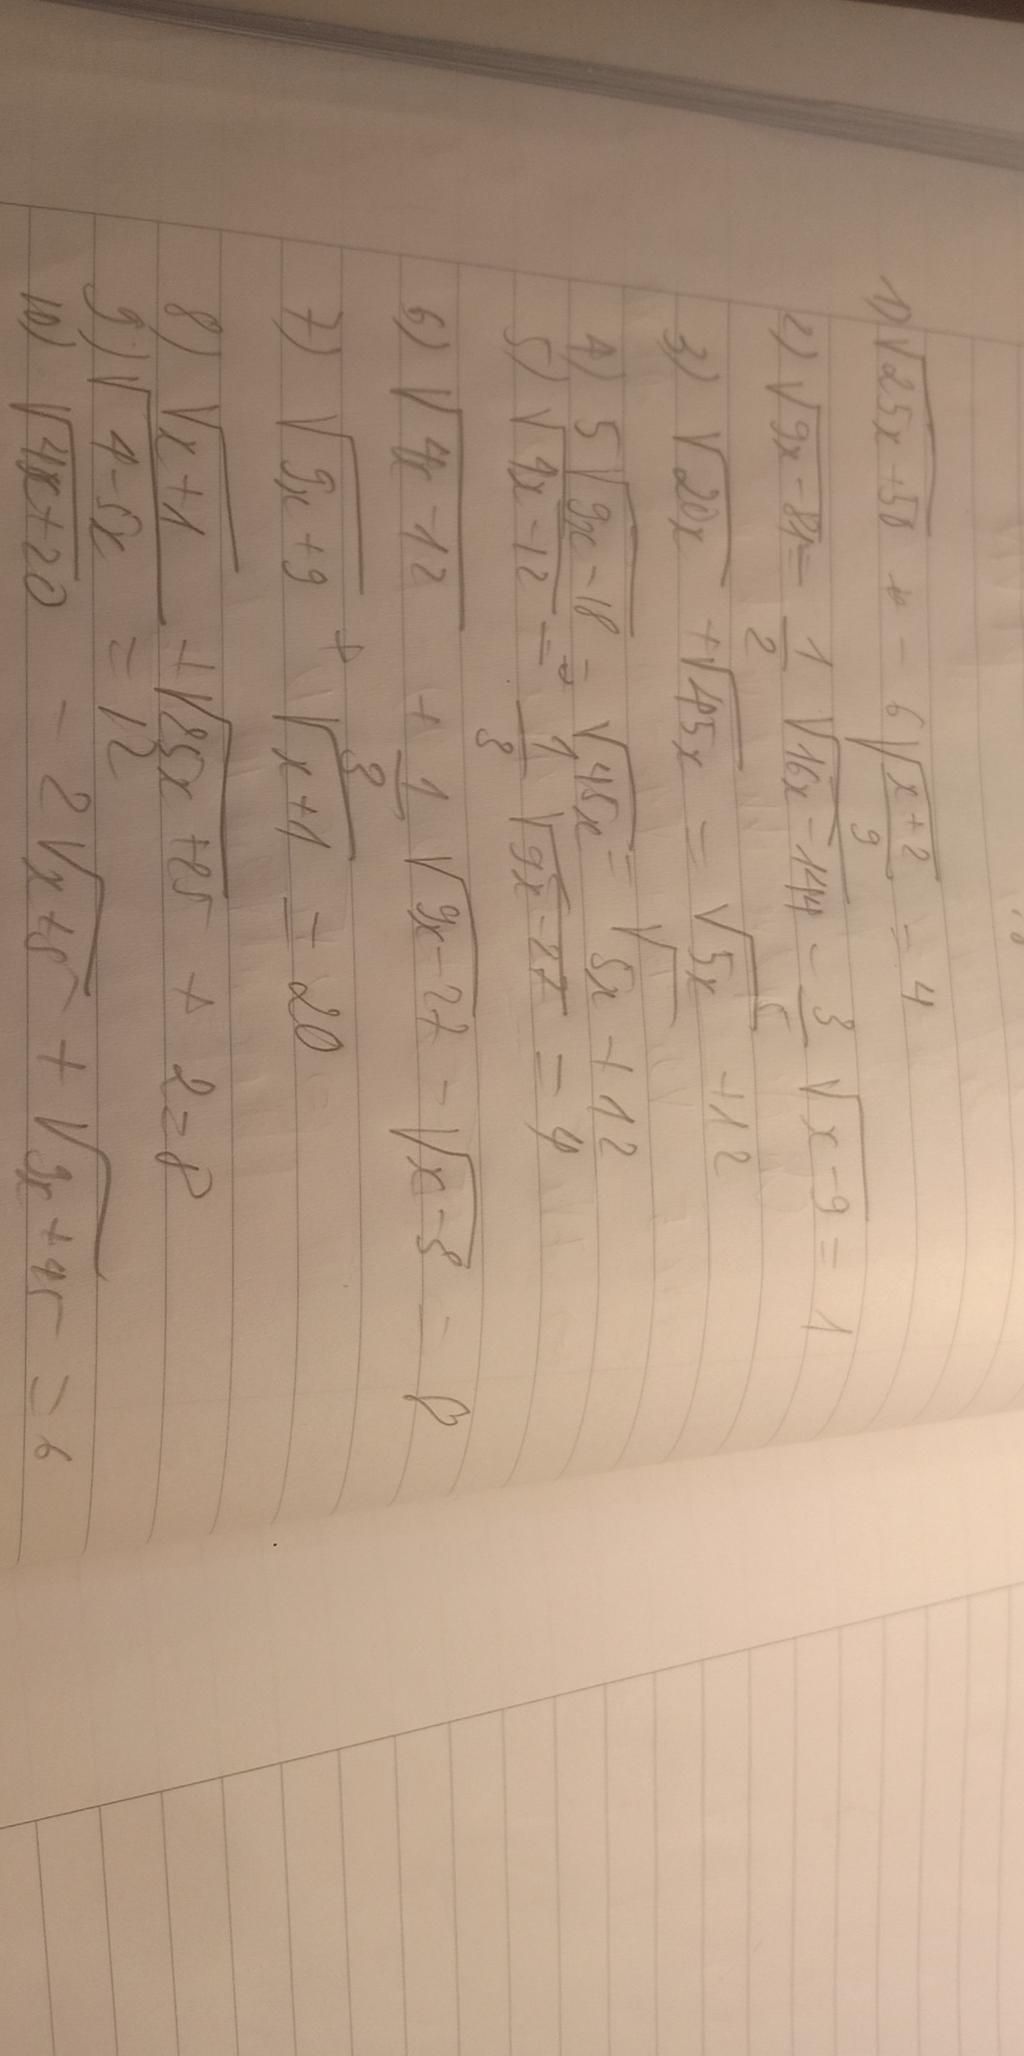 1) √25x+50 - 6√x+2/9 = 4
2) √9x-81 = 1/2 √16x-144 - 3 √x-9 = 1
3) √20x + √45x = √5x +12
4) 5√9x-18 = √45x = √5x +12
5) √4x-12 = 1/3 √9x-27 = 4
6) √4x-12 + 1/3 √9x-27 - √x-3 = 8
7) √9x+9 + √x+1 = 20
8) √x+1 + √25x+25 + 2=8
9) √4-5x = 12
10) √4x+20 - 2√x+5 + √9x+45 = 6